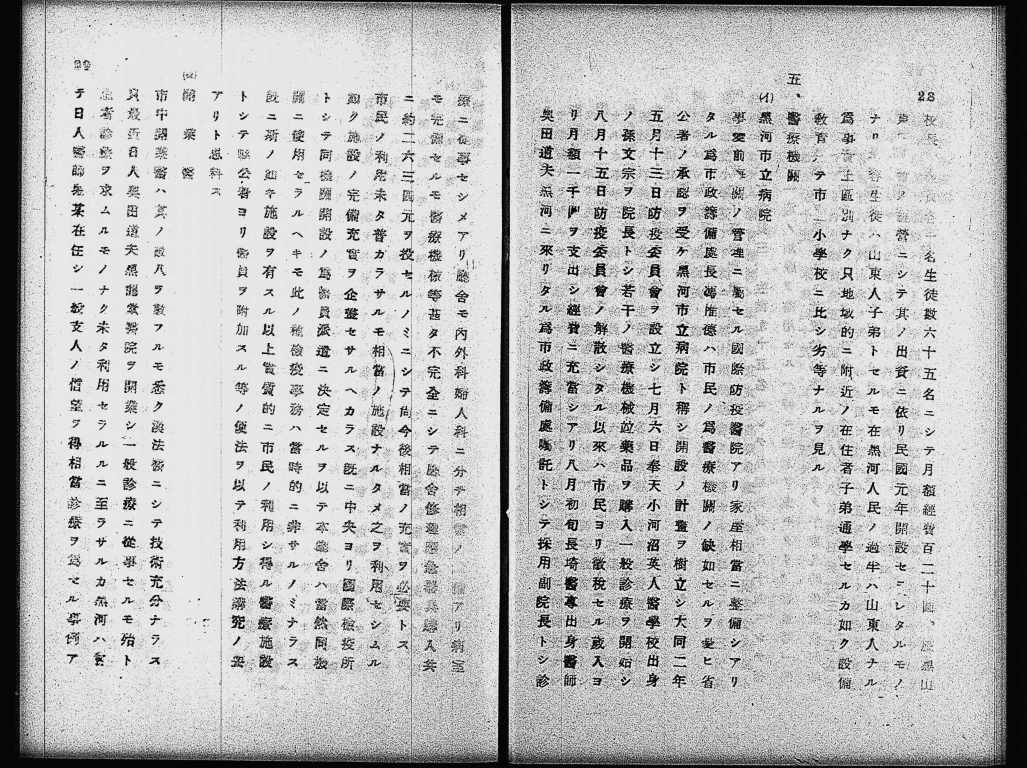 28
校長 名生徒數六十五名ニシテ月額經費百二十圓、
經營ニシテ其ノ出資ニ依リ民國元年開設セラレタルモノ
ナリ 生徒ハ山東人子弟トセルモ在黑河人民ノ過半ハ山東人ナル
爲事實上區別ナク只地域的ニ附近ノ在住者子弟通學セルカ如ク設備
教育 市立小學校ニ比シ劣等ナルヲ見ル
五、醫療機關
(イ)黑河市立病院
事變前 關ノ管理ニ屬セル國際防疫醫院アリ家屋相當ニ整備シアリ
タル爲市政籌備處長馮維德ハ市民ノ爲醫療機關ノ缺如セルヲ憂ヒ省
公署ノ承認ヲ受ケ黑河市立病院ト稱シ開設ノ計畫ヲ樹立シ大同二年
五月十三日防疫委員會ヲ設立シ七月六日奉天小河沼英人醫學校出身
ノ孫文宗ヲ院長トシ若干ノ醫療機械竝藥品ヲ購入一般診療ヲ開始シ
八月十五日防疫委員會ノ解散シタル以來ハ市民ヨリ徵稅セル歲入ヨ
リ月額一千圓ヲ支出シ經費ニ充當シアリ八月初旬長埼醫專出身醫師
奧田道夫黑河ニ來リタル爲市政籌備處囑託トシテ採用副院長トシ診
29
療ニ從事セシメアリ廳舍モ內外科婦人科ニ分チ相當ノ アリ病室
モ完備セルモ醫療機械等甚タ不完全ニシテ廳舍修理 器具購入共
ニ約二六三四元ヲ投セルノミニシテ尙今後相當ノ充實ヲ必要トス
市民ノ利用未タ普カラサルモ相當ノ施設ナルタメ之ヲ利用セシムル
如ク施設ノ完備充實ヲ企畫セサルヘカラス既ニ中央ヨリ國際檢疫所
トシテ同機關開設ノ爲醫員派遣ニ決定セルヲ以テ本廳舍ハ當然同機
關ニ使用セラルヘキモ此ノ種檢疫事務ハ當時的ニ非サルノミナラス
既ニ斯ノ如キ施設ヲ有スル以上實質的ニ市民ノ利用シ得ル醫療施設
トシテ縣公署ヨリ醫員ヲ附加スル等ノ便法ヲ以テ利用方法講究ノ要
アリト思科ス
(ロ)開業醫
市中開業醫ハ其ノ數八ヲ數フルモ悉ク漢法醫ニシテ技術充分ナラス
只最近日人奧田道夫黑龍 醫院ヲ開業シ一般診療ニ從事セルモ殆ト
患者診療ヲ求ムルモノナク未タ利用セラルルニ至ラサルカ黑河ハ
テ日人醫師某在任シ一般支人ノ信望ヲ得相當診療ヲ爲セル事例ア